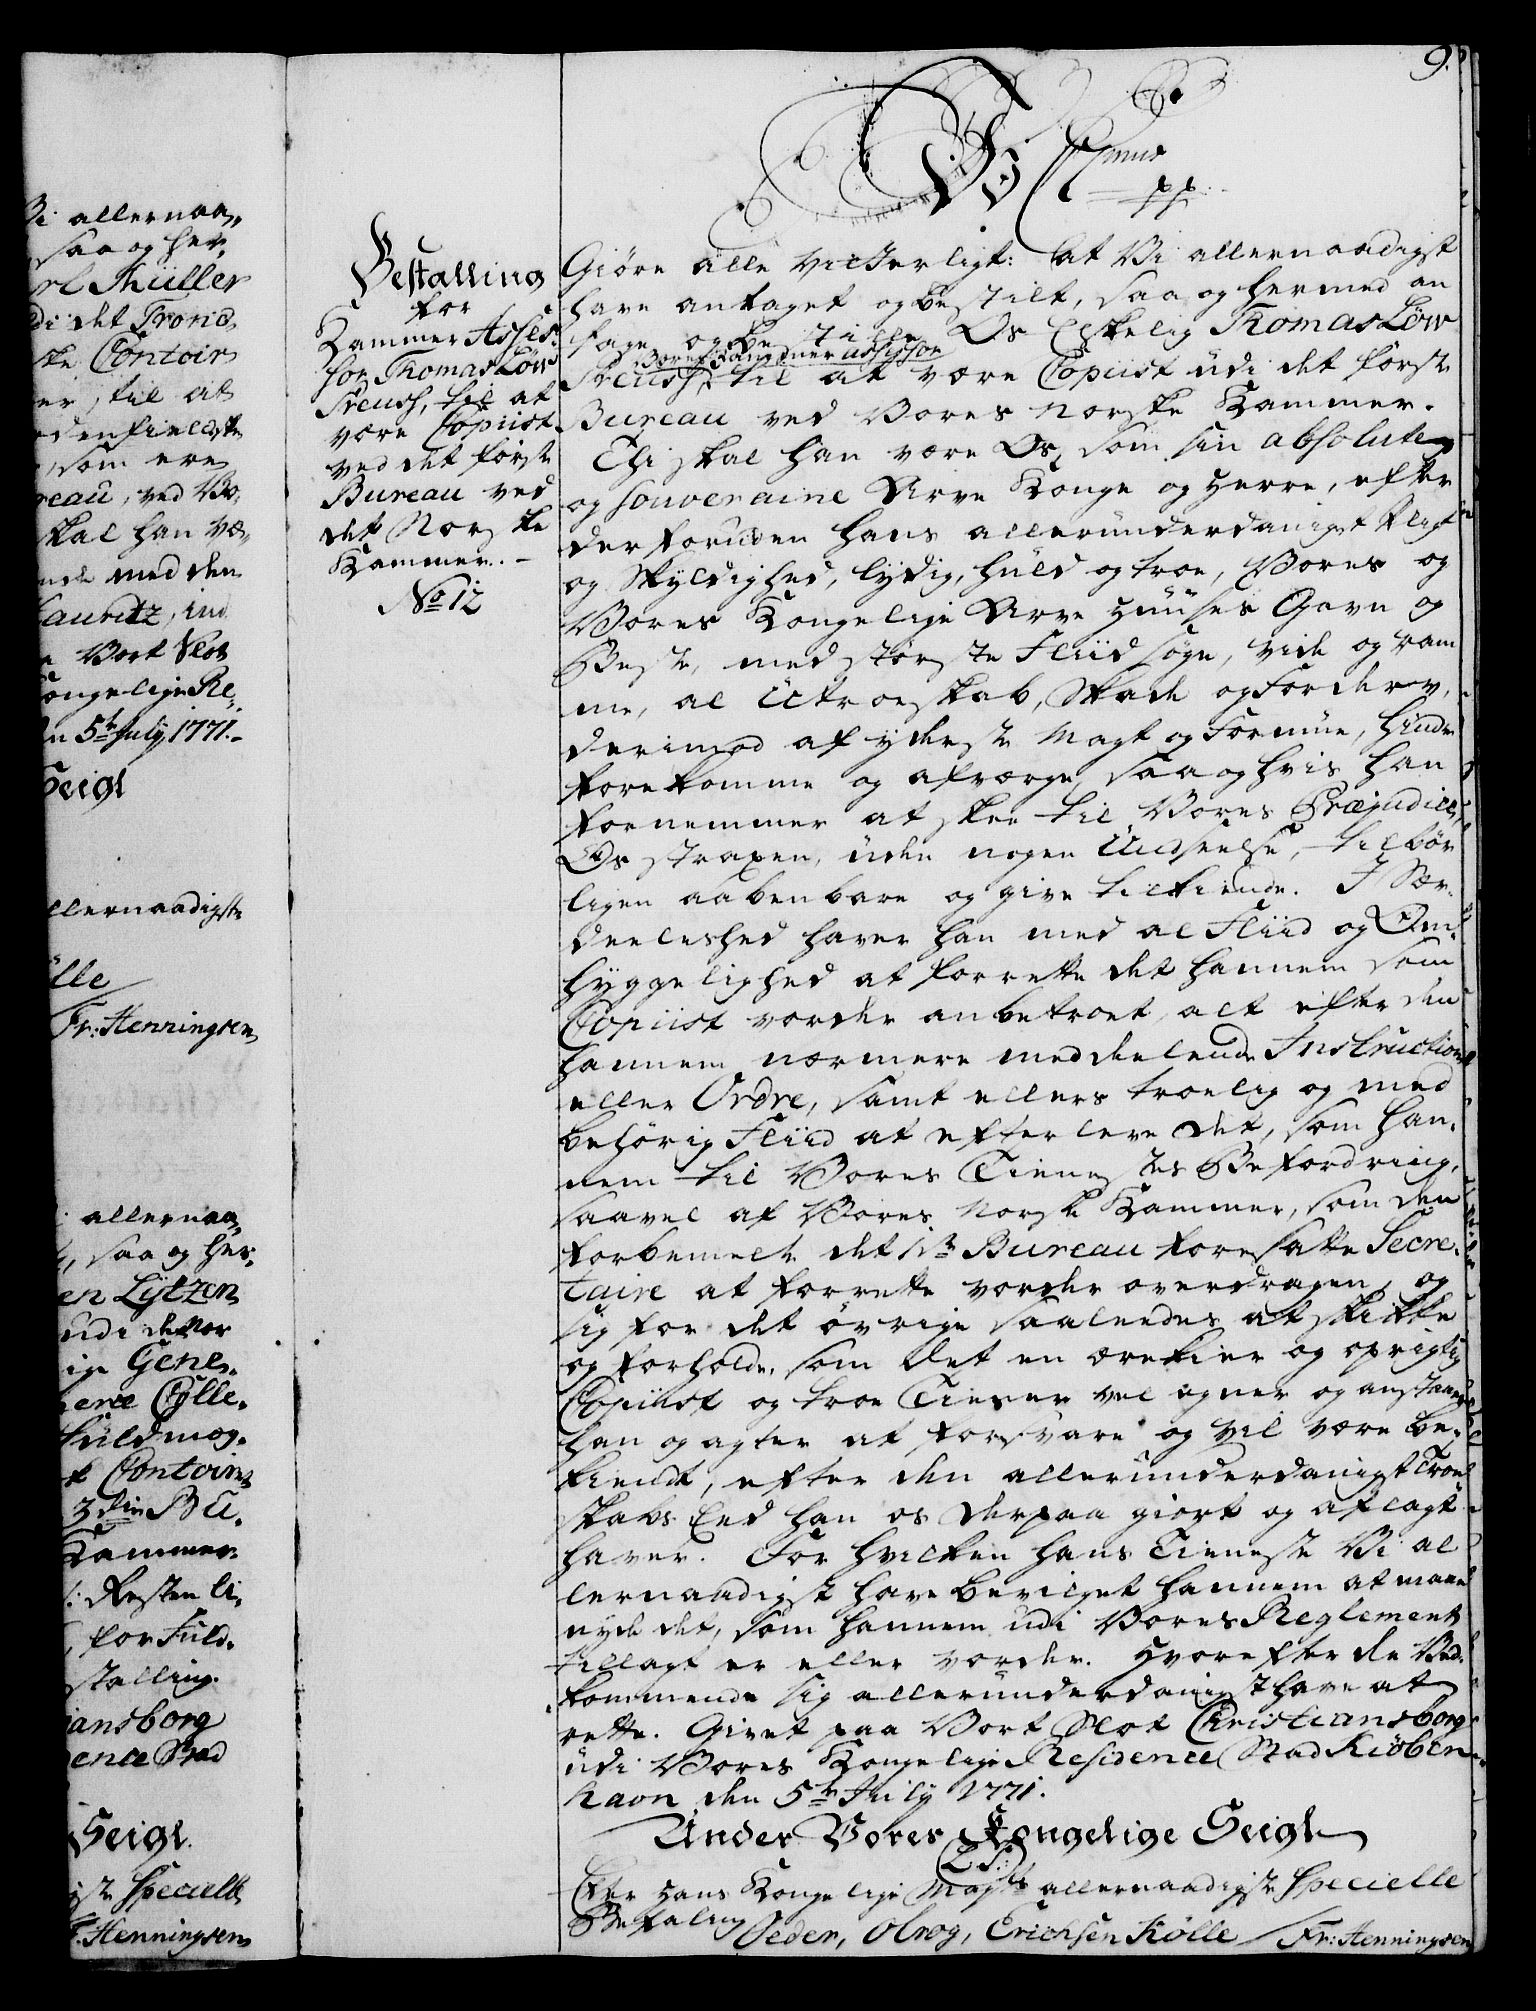 9.
Vi allernaa-
saa og her-
Müller
udi det Trond-
ske Contoir
er, til at
denfieldske
som ere
reau, ved Vo-
skal han væ-
med den
Lauritz, ind
Vort Slot
Kongelige Re-
den 5te July 1771.
Seigl
allernaadigste
Kölle
Fr: Henningsen
allernaa-
, saa og her-
en Lützen
udi de Nor
ige Gene-
Colle-
Fuldmæg-
t Contoir
3die Bu-
Kammer
Resten li-
for Fuld-
stalling.
iansborg
ence Stad
Seigl.
ste Specielle
Fr: Henningsen
Bestalling
for
Kammer Asses-
sor Thomas Löw
Preusf, til at
være Copiist
ved det første
Bureau ved
det Norske
Kammer. -
No 12
Giöre alle vitterligt: at Vi allernaadigst
have antaget og bestilt, saa og hermed an
tage og bestille Os Elskelig Thomas Löw
Vores Kammer assessor
Preusf, til at være Copiist udi det første
Bureau ved Vores Norske Kammer.
Thi skal han være Os, som sin absolute
og souveraine Arve Konge og Herre, efter
derforuden hans allerunderdanigst Pligt
og Skyldighed, lydig, huld og troe, Vores og
Vores Kongelige Arve Huuses Gavn og
Beste, med største Fliid søge, vide og ram
me, al Utroeskab, Skade og Forderv,
derimod af yderste Magt og Formue, hindre
forekomme og afværge, saa og hvis han
fornemmer at skee til Vores Præjudice,
Os straxen, uden nogen Undseelse, tilbør
ligen aabenbare og give tilkiende. I Sær-
deeleshed haver han med al Fliid og Om-
hyggelighed at forrette det hannem som
Copiist vorder anbetroet, alt efter den
hannem nærmere meddeelende Instruction
eller Ordre, samt ellers troelig og med
behörig Fliid at efterleve det, som han-
nem til Vores Tienestes Befordring,
saavel af Vores Norske Kammer, som den
forbemelte det 1ste Bureau foresatte Secre-
taire at forrette vorder overdragen, og
sig for det øvrige saaledes at skikke
og forholde, som det en ærekier og oprigtig
Copiist og troe Tiener vel egner og anstaaer
han og agter at forsvare og vil være be-
kiendt, efter den allerunderdanigst Troe
skabs Eed han os derpaa giort og aflagt
haver. For hvilken hans Tieneste Vi al
lernaadigst have bevilget hannem at maae
nyde det, som hannem udi Vores Reglement
tillagt er eller vorder. Hvorefter de Ved-
kommende sig allerunderdanigst have at
rette. Givet paa Vort Slot Christiansborg
udi Vores Kongelige Residence Stad Kiøben-
havn den 5te July 1771.
Under Vores Kongelige Seigl
(L.S.)
Efter Hans Kongelige Mayts allernaadigste Specielle
Befaling
Oeder, Olrog, Erichsen Kölle / Fr: Henningsen